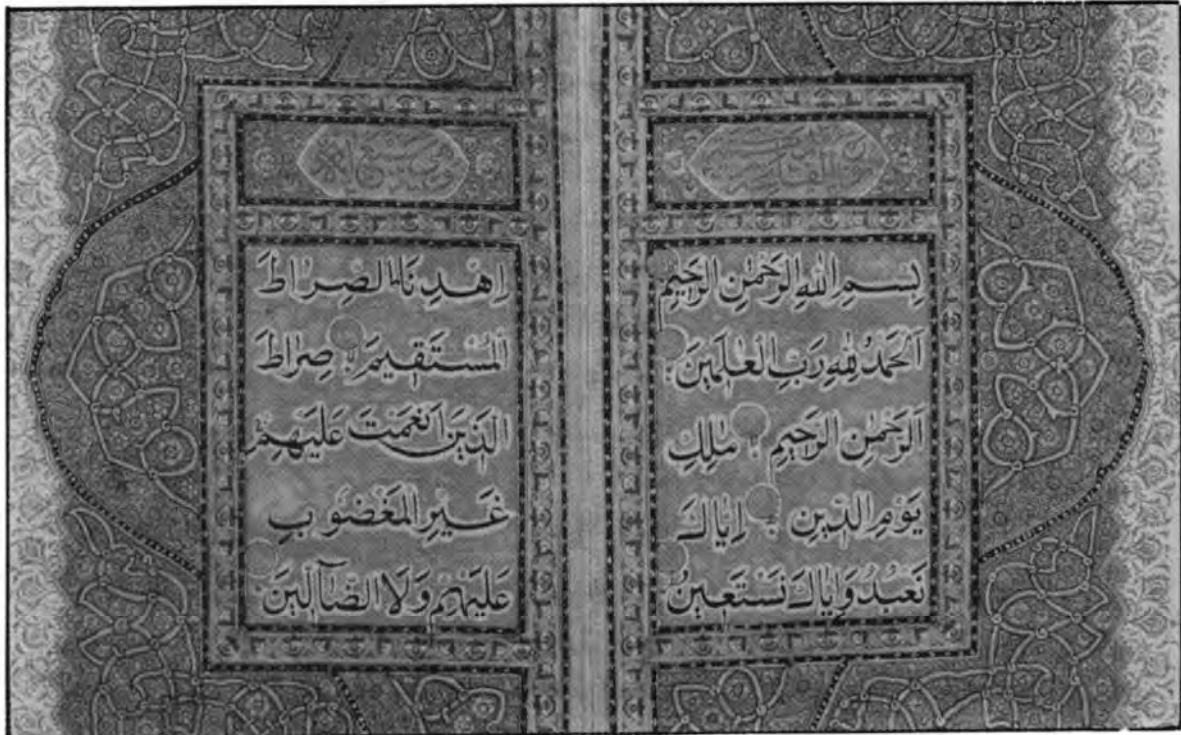 بِسْمِ اللهِ الرَّحْمٰنِ الرَّحِيمِ
اَلْحَمْدُ لِلّٰهِ رَبِّ الْعٰلَمِينَ
اَلرَّحْمٰنِ الرَّحِيمِ مٰلِكِ
يَوْمِ الدِّينِ اِيَّاكَ
نَعْبُدُ وَاِيَّاكَ نَسْتَعِينُ
اِهْدِنَا الصِّرَاطَ
الْمُسْتَقِيمَ صِرَاطَ
الَّذِينَ اَنْعَمْتَ عَلَيْهِمْ
غَيْرِ الْمَغْضُوبِ
عَلَيْهِمْ وَلَا الضَّآلِّينَ